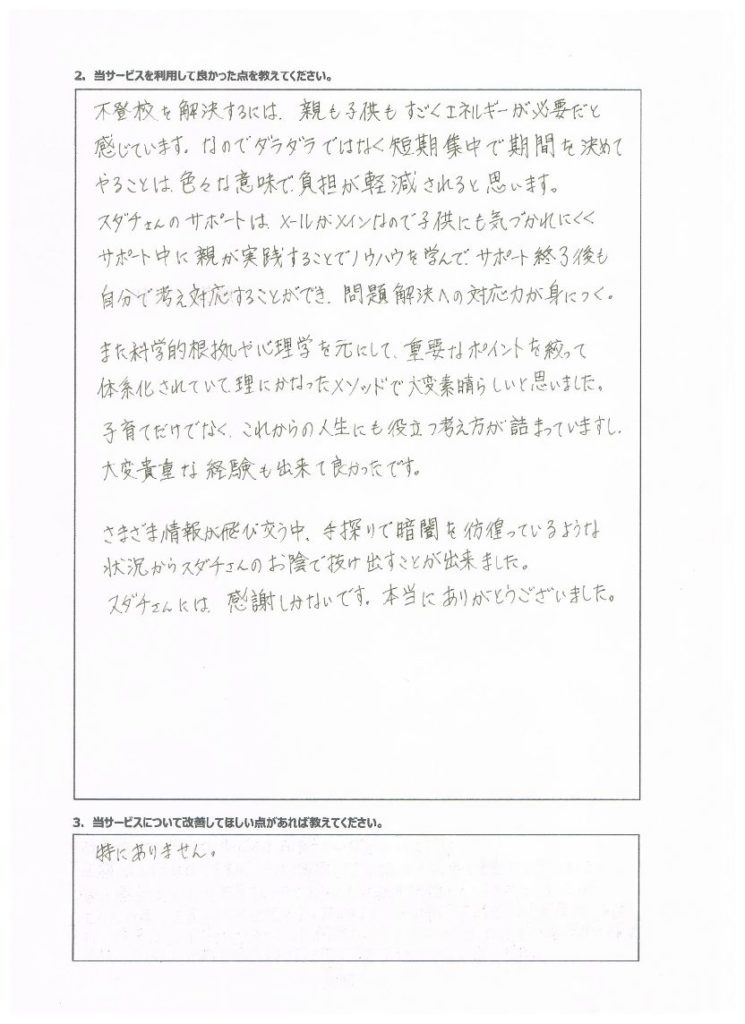 2、当サービスを利用して良かった点を教えてください。
不登校を解決するには、親も子供もすごくエネルギーが必要だと
感じています。なのでダラダラではなく短期集中で期間を決めて
やることは、色々な意味で負担が軽減されると思います。
スダチさんのサポートは、メールがメインなので子供にも気づかれにくく
サポート中に親が実践することでノウハウを学んで、サポート終了後も
自分で考え対応することができ、問題解決への対応力が身につく。
また科学的根拠や心理学を元にして、重要なポイントを絞って
体系化されていて理にかなったメソッドで大変素晴らしいと思いました。
子育てだけでなく、これからの人生にも役立つ考え方が詰まっていますし、
大変貴重な経験も出来て良かったです。
さまざま情報が飛び交う中、手探りで暗闇を彷徨っているような
状況からスダチさんのお陰で抜け出すことが出来ました。
スダチさんには、感謝しかないです。本当にありがとうございました。
3、当サービスについて改善してほしい点があれば教えてください。
特にありません。